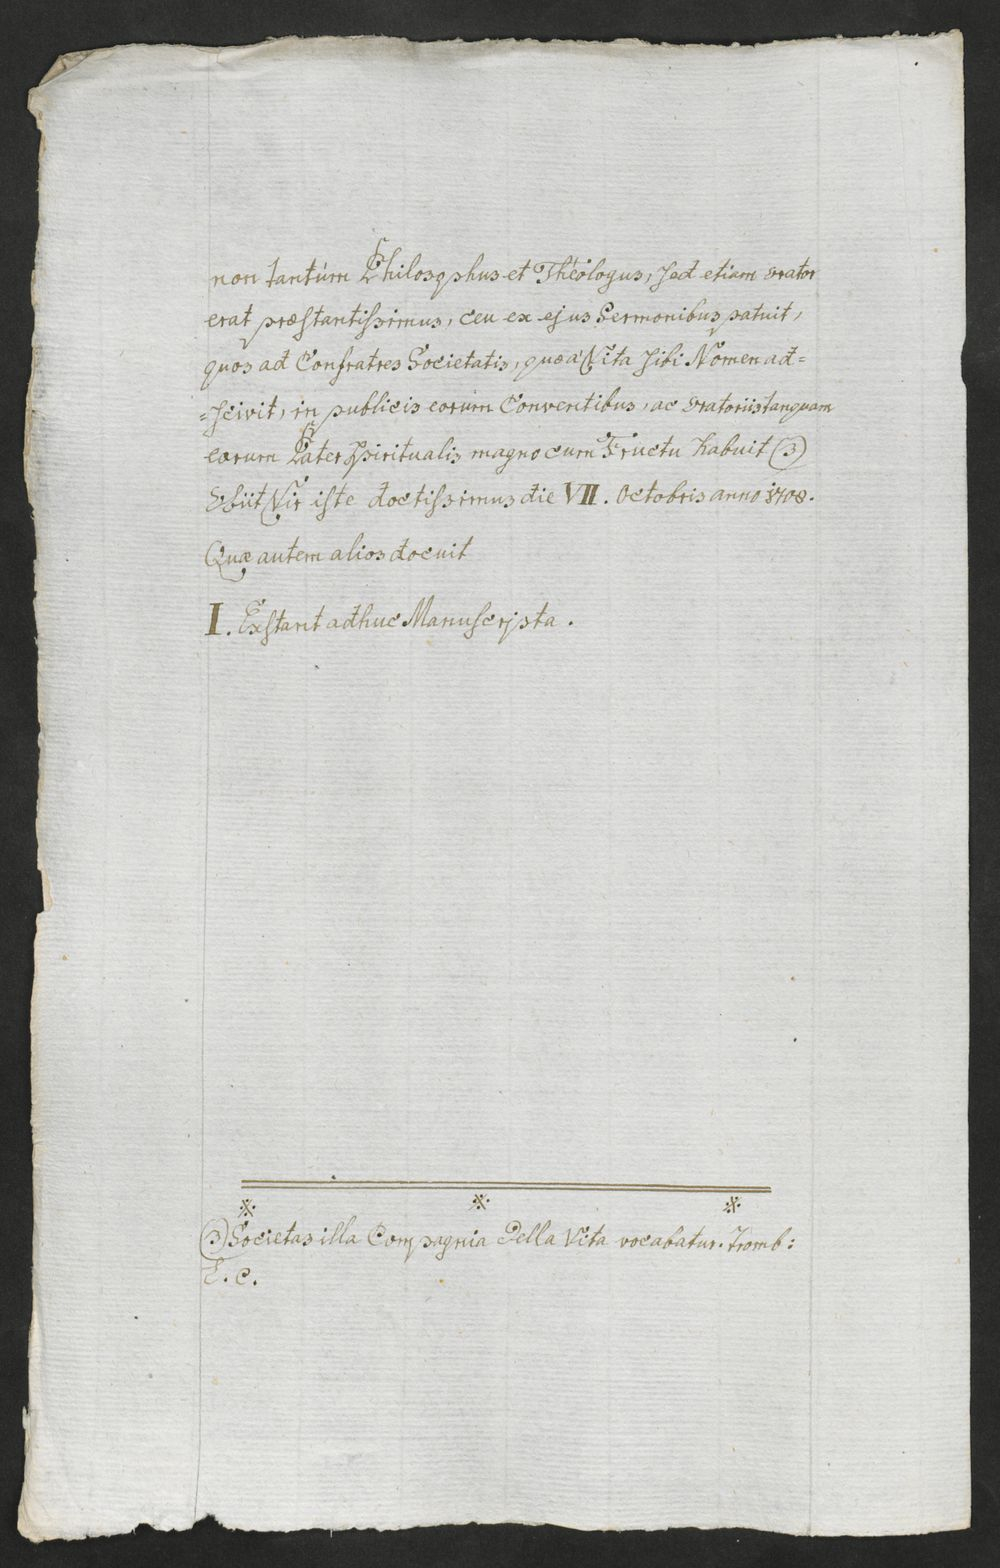 non tantúm Philosophus et Theologus, sed etiam orator
erat præstantissimus, ceu ex ejus Sermonibus patuit,
quos ad Confratres Societatis, quæ a Vita sibi Nomen ad=
=scivit, in publicis eorum Conventibus, ac oratoriis tanquam
eorum Pater Spiritualis magno cum Fructu habuit (3)
Obiit Vir iste doctissimus die VII. Octobris anno 1708.
Quæ autem alios docuit
I. Exstant adhuc Manuscripta.
(3) Societas illa Compagnia Della Vita vocabatur. Tromb:
L. C.